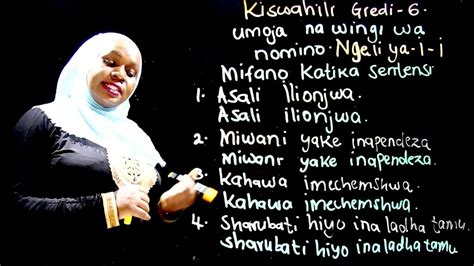 Kiswahili Gredi-6.
umoja na wingi wa
nomino. Ngeli ya-I-I
Mifano Katika sentensi
1. Asali Ilionjwa.
Asali ilionjwa.
2. Miwani yake inapendeza
Miwani yake inapendeza.
3. Kahawa imechemshwa.
Kahawa imechemshwa.
4. Sharubati hiyo ina ladha tamu.
Sharubati hiyo ina ladha tamu